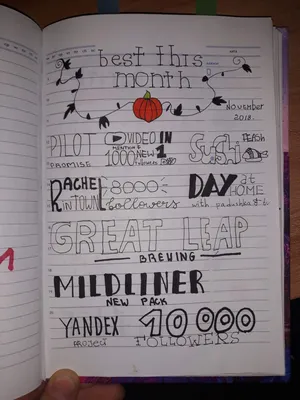 best this
month
November
2018.
PILOT
PROMISE
VIDEO IN
1000 NEW 1
followers
SUSHI
RACHEL
IN TOWN
8000
followers
DAY at
HOME
with
GREAT LEAP
BREWING
MILDLINER
NEW PACK
YANDEX
PROJECT
10 000
FOLLOWERS